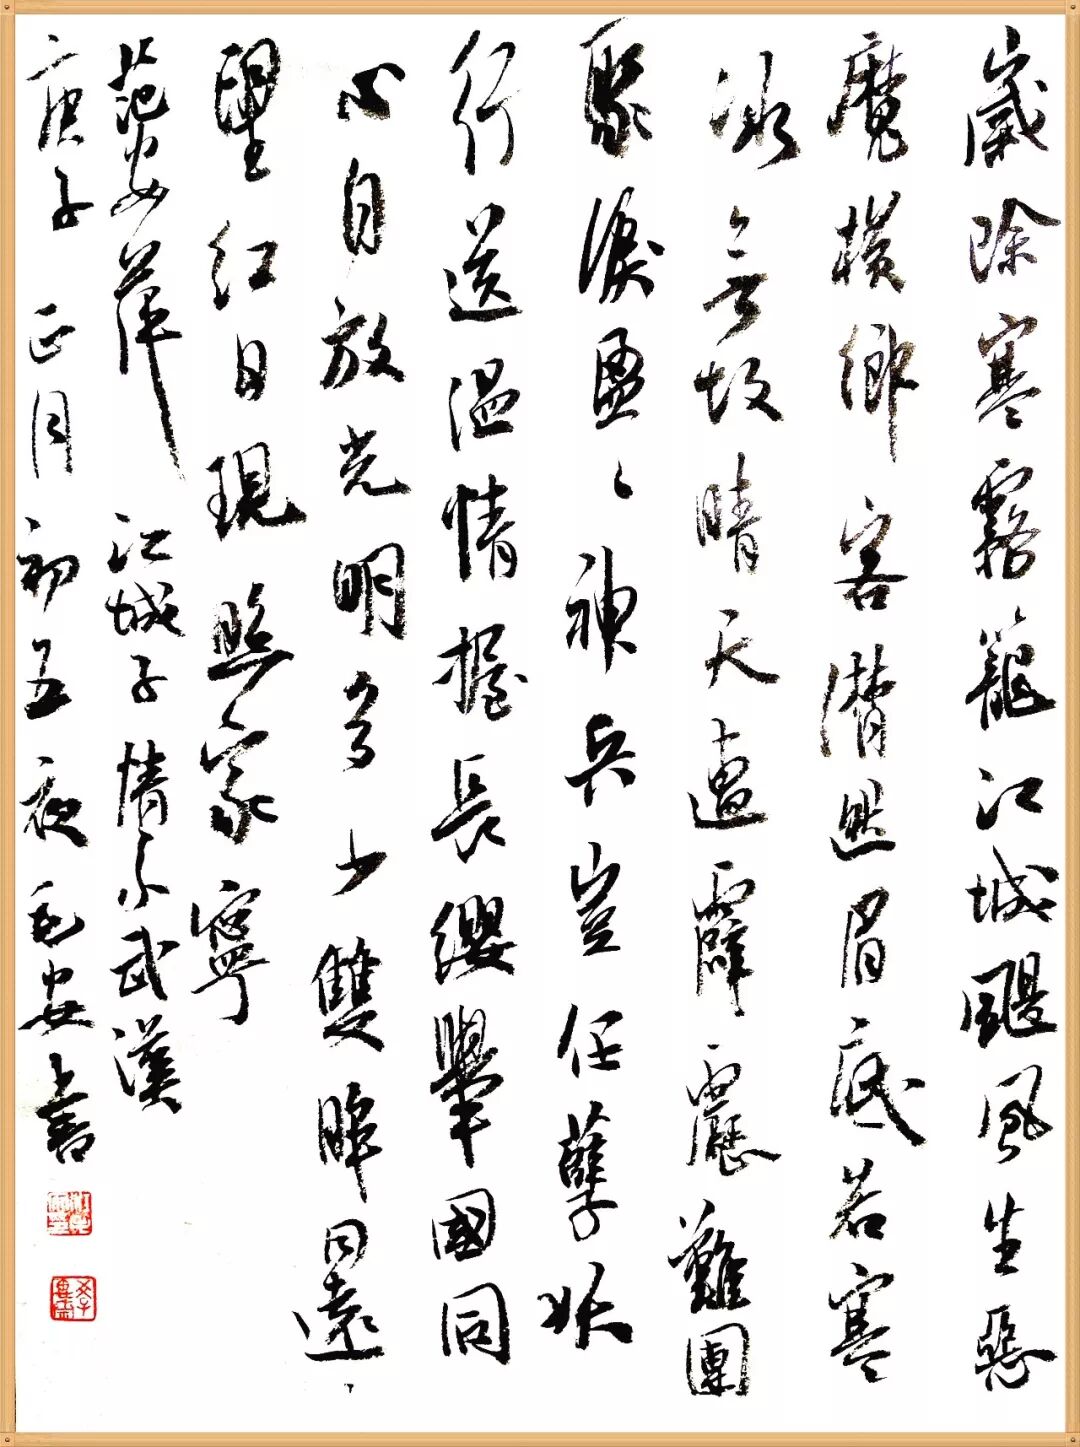 歲除寒霧籠江城颶風生惡
魔橫鄉客潸然眉底若寒
冰無故晴天遭霹靂難團
聚淚盈〻神兵豈任孽妖
行送溫情握長纓舉國同
心自放光明多少雙眸同遠〻
望紅日現照家寧
范安萍 江城子 情系武漢
庚子正月初五夜 安書